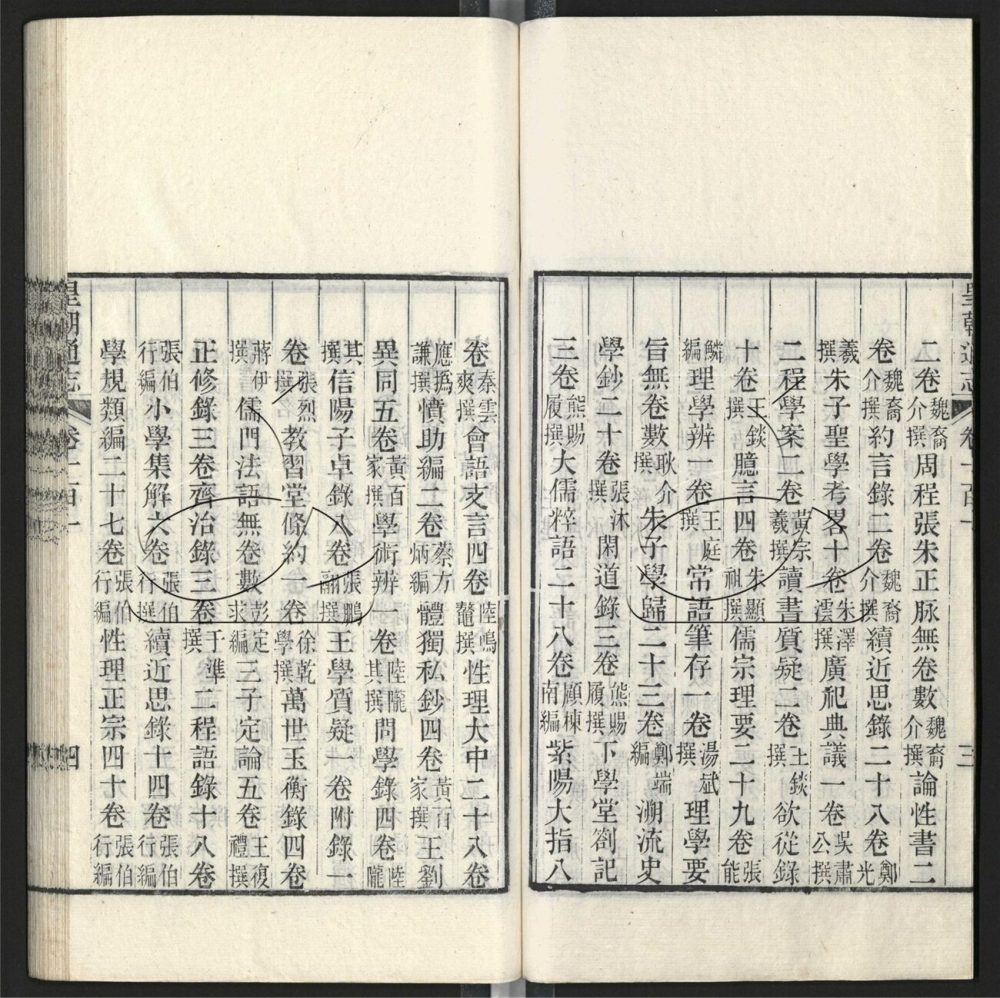 二卷魏裔介撰周程張朱正脉無卷數魏裔介撰論性書二
卷魏裔介撰約言錄二卷魏裔介撰續近思錄二十八卷鄭光
羲撰朱子聖學考畧十卷朱澤澐撰廣祀典議一卷吳肅公撰
二程學案二卷黃宗羲撰讀書質疑二卷王錟撰欲從錄
十卷王錟撰臆言四卷朱顯祖撰儒宗理要二十九卷張能
鱗編理學辨一卷王庭撰常語筆存一卷湯斌撰理學要
旨無卷數耿介撰朱子學歸二十三卷鄭端編溯流史
學鈔二十卷張沐撰閑道錄三卷熊賜履撰下學堂劄記
三卷熊賜履撰大儒粹語二十八卷顧棟南編紫陽大指八
皇朝通志 卷一百一 三
卷秦雲爽撰會語支言四卷陸鳴鼇撰性理大中二十八卷
應撝謙撰憤助編二卷蔡方炳編體獨私鈔四卷黃百家撰王劉
異同五卷黃百家撰學術辨一卷陸隴其撰問學錄四卷陸隴
其撰信陽子卓錄八卷張鵬翮撰王學質疑一卷附錄一
卷張烈撰教習堂條約一卷徐乾學撰萬世玉衡錄四卷
蔣伊撰儒門法語無卷數彭定求編三子定論五卷王複禮撰
正修錄三卷齊治錄三卷于準撰二程語錄十八卷
張伯行編小學集解六卷張伯行撰續近思錄十四卷張伯行編
學規類編二十七卷張伯行編性理正宗四十卷張伯行編
皇朝通志 卷一百一 四